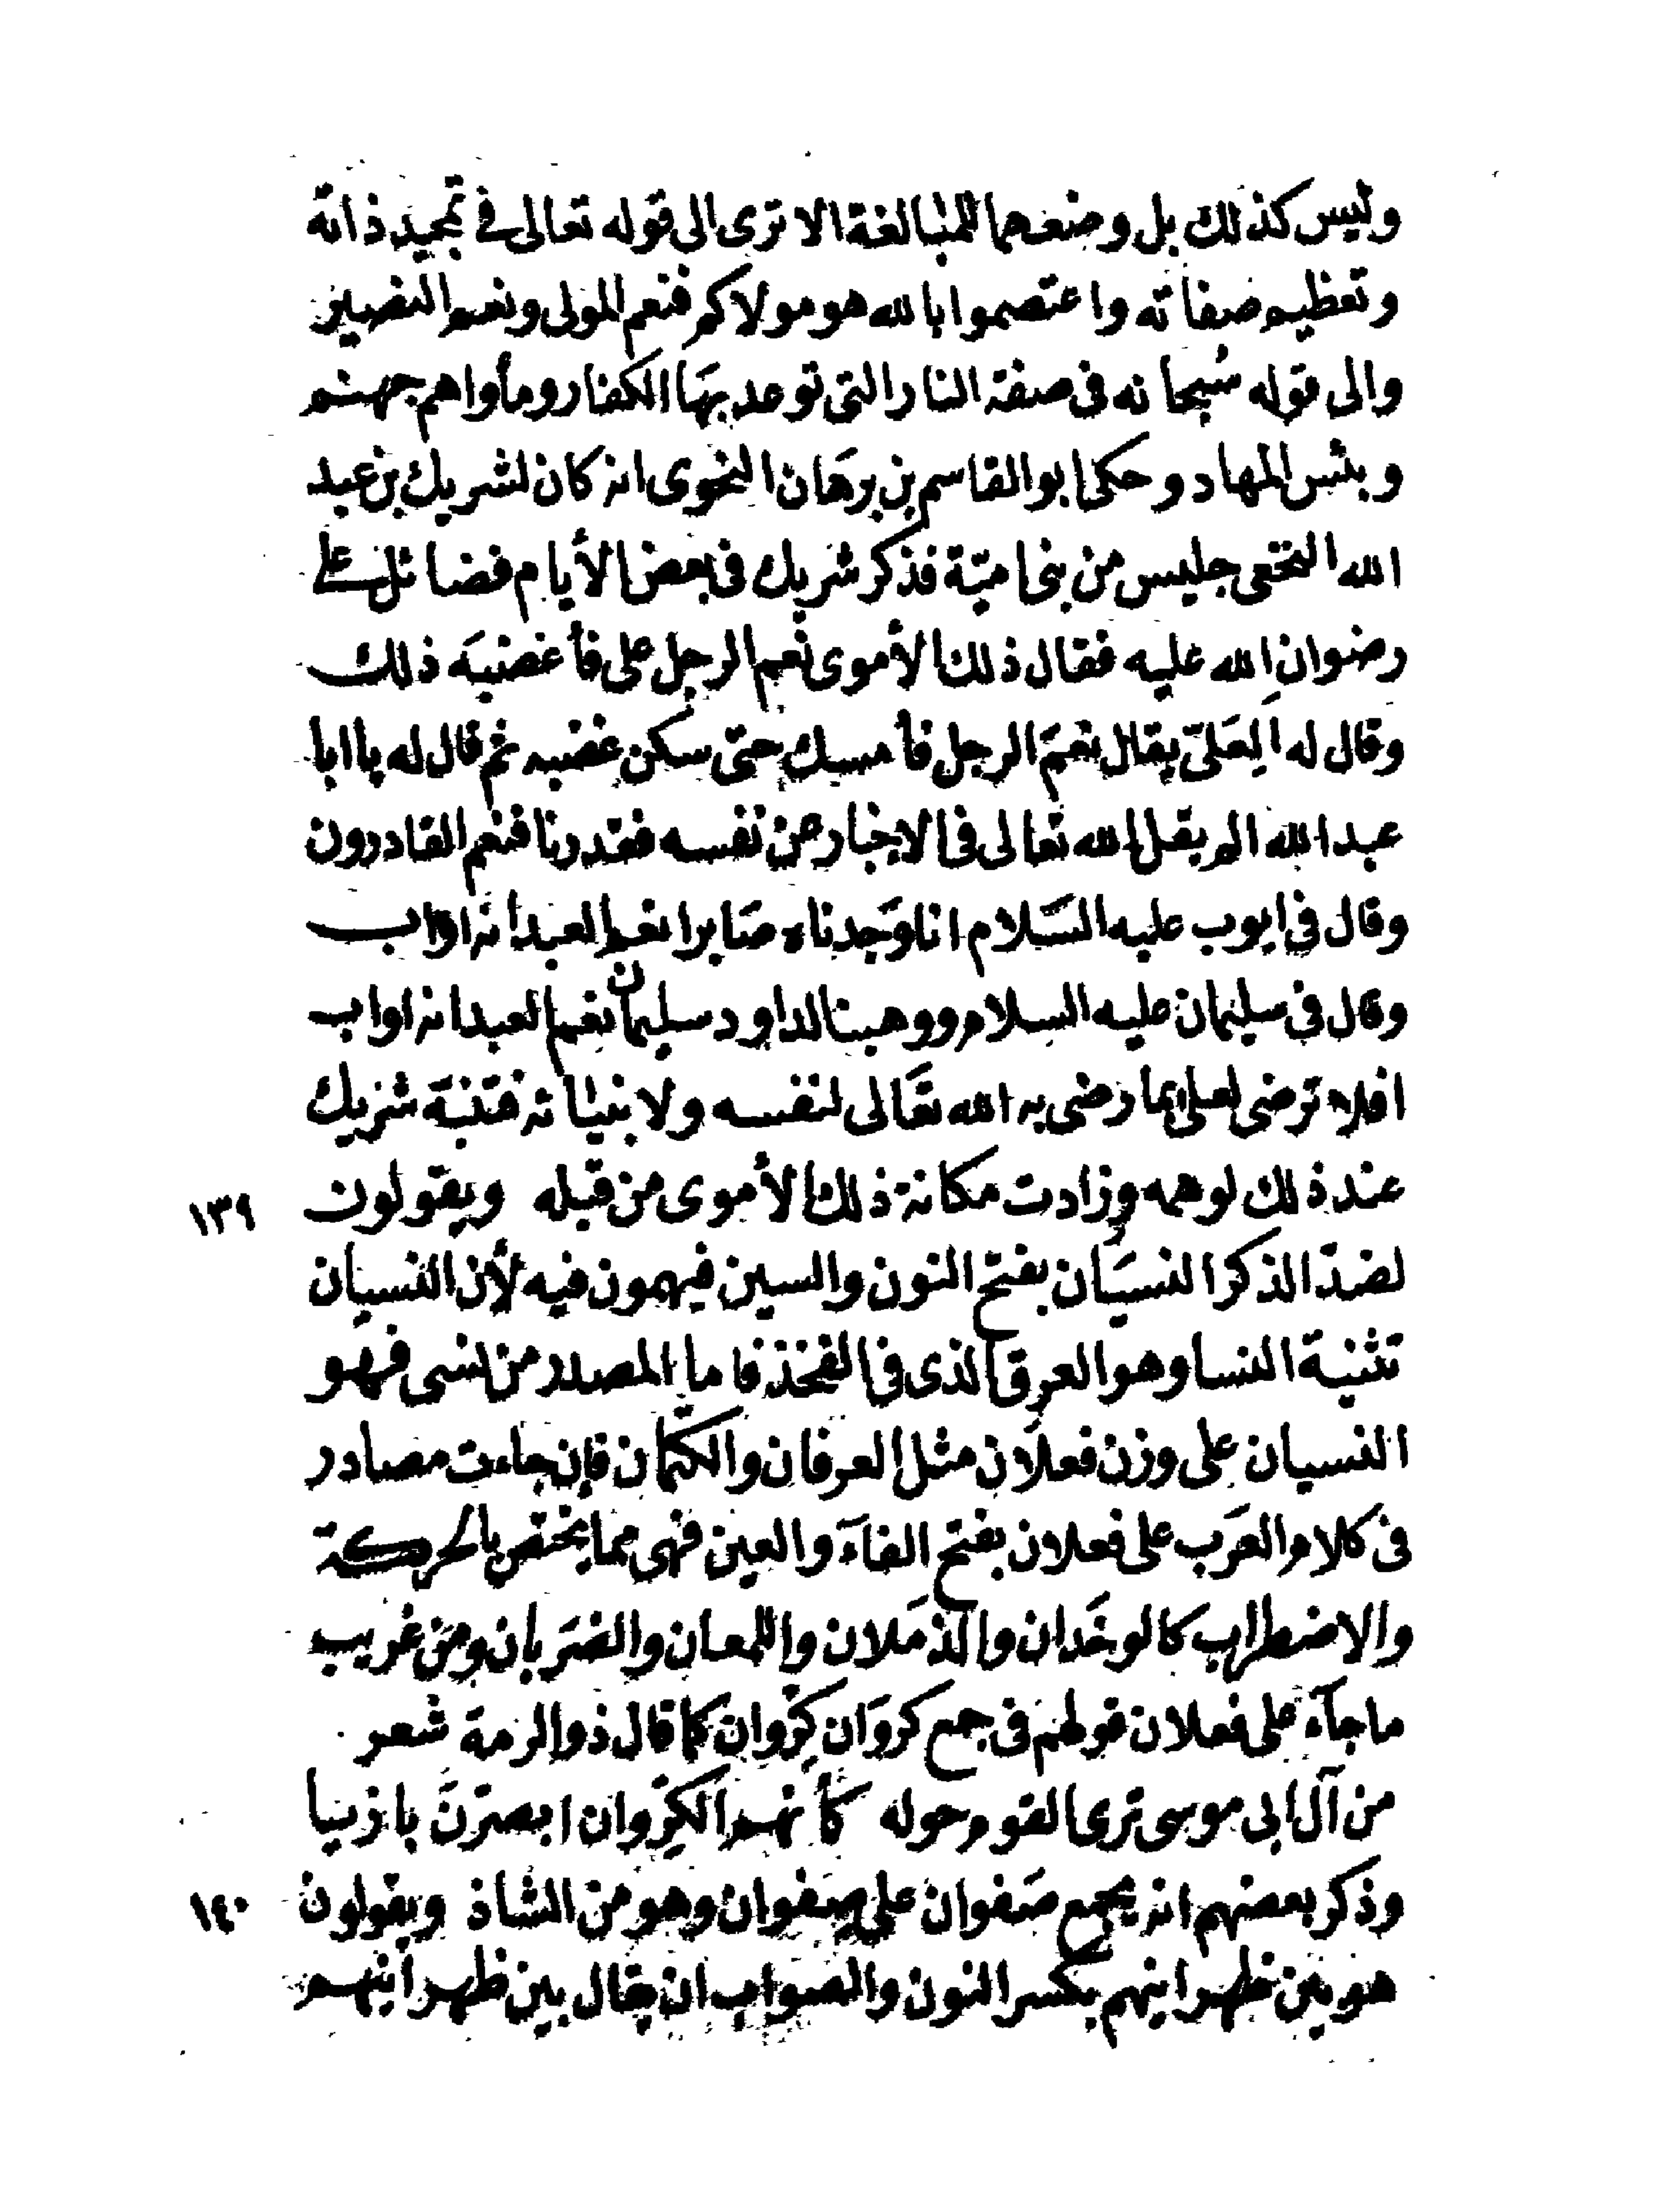 وليس كذلك بل وضعهما للمبالغة الا ترى الى قوله تعالى في تمجيد ذاته
وتعظيم صفاته واعتصموا بالله هو مولاكم فنعم المولى ونعم النصير
والى قوله سُبحانه فى صفة النار التى توعد بهَا الكفار ومأواهم جهنم
وبئس المهاد وحكى ابو القاسم بن برهَان النحوى انه كان لشريك بن عبد
الله النخعى جليس من بنى اميّة فذكر شريك فى بعض الأيام فضائل على
رضوان الله عليه فقال ذلك الأموى نعم الرجل على فأغضبَه ذلك
وقال له العَلىّ يقال نعمَ الرجل فأمسك حتى سكن غضبه ثم قال له يا ابا
عبد الله الم يقل الله تعالى فى الاخبار عن نفسه فقدرنا فنعم القادرون
وقال فى ايوب عليه السَلام انا وَجدناه صَابرا نعم العبد انه اواب
وقال فى سليمان عليه السلام ووهبنا لداود سليمان نعم العبد انه اواب
افلا ترضى لعلى بما رضى به الله تعَالى لنفسه ولانبيائه فتنبّه شريك
عند ذلك لوهمه وزادت مكانة ذلك الأموى من قبله ويقولون ١٣٩
لضدّ الذكر النسيَان بفتح النون والسين فيهمون فيه لأن النسيان
تثنية النسا وهو العرق الذى فى الفخذ فاما المصدر من نسى فهو
النسيان على وزن فعلَان مثل العرفان والكتمان فإن جاءت مصادر
فى كلام العَرب على فعلان بفتح الفآء والعين فهى مما يختص بالحركة
والاضطراب كالوخَدان والذمَلان واللمعان والضَربان ومن غريب
ما جآء على فعلان قولهم فى جمع كروَان كِرْوان كما قال ذو الرمة شعر
من آل ابى موسى ترى القوم حوله كأنهم الكِرْوان ابصرنَ بازيا
وذكر بعضهم انه يجمع صَفوان على صِفوان وهو من الشاذ ويقولون ١٤٠
هو بين ظهرانيهم بكسر النون والصواب ان يقال بين ظهرانَيهم